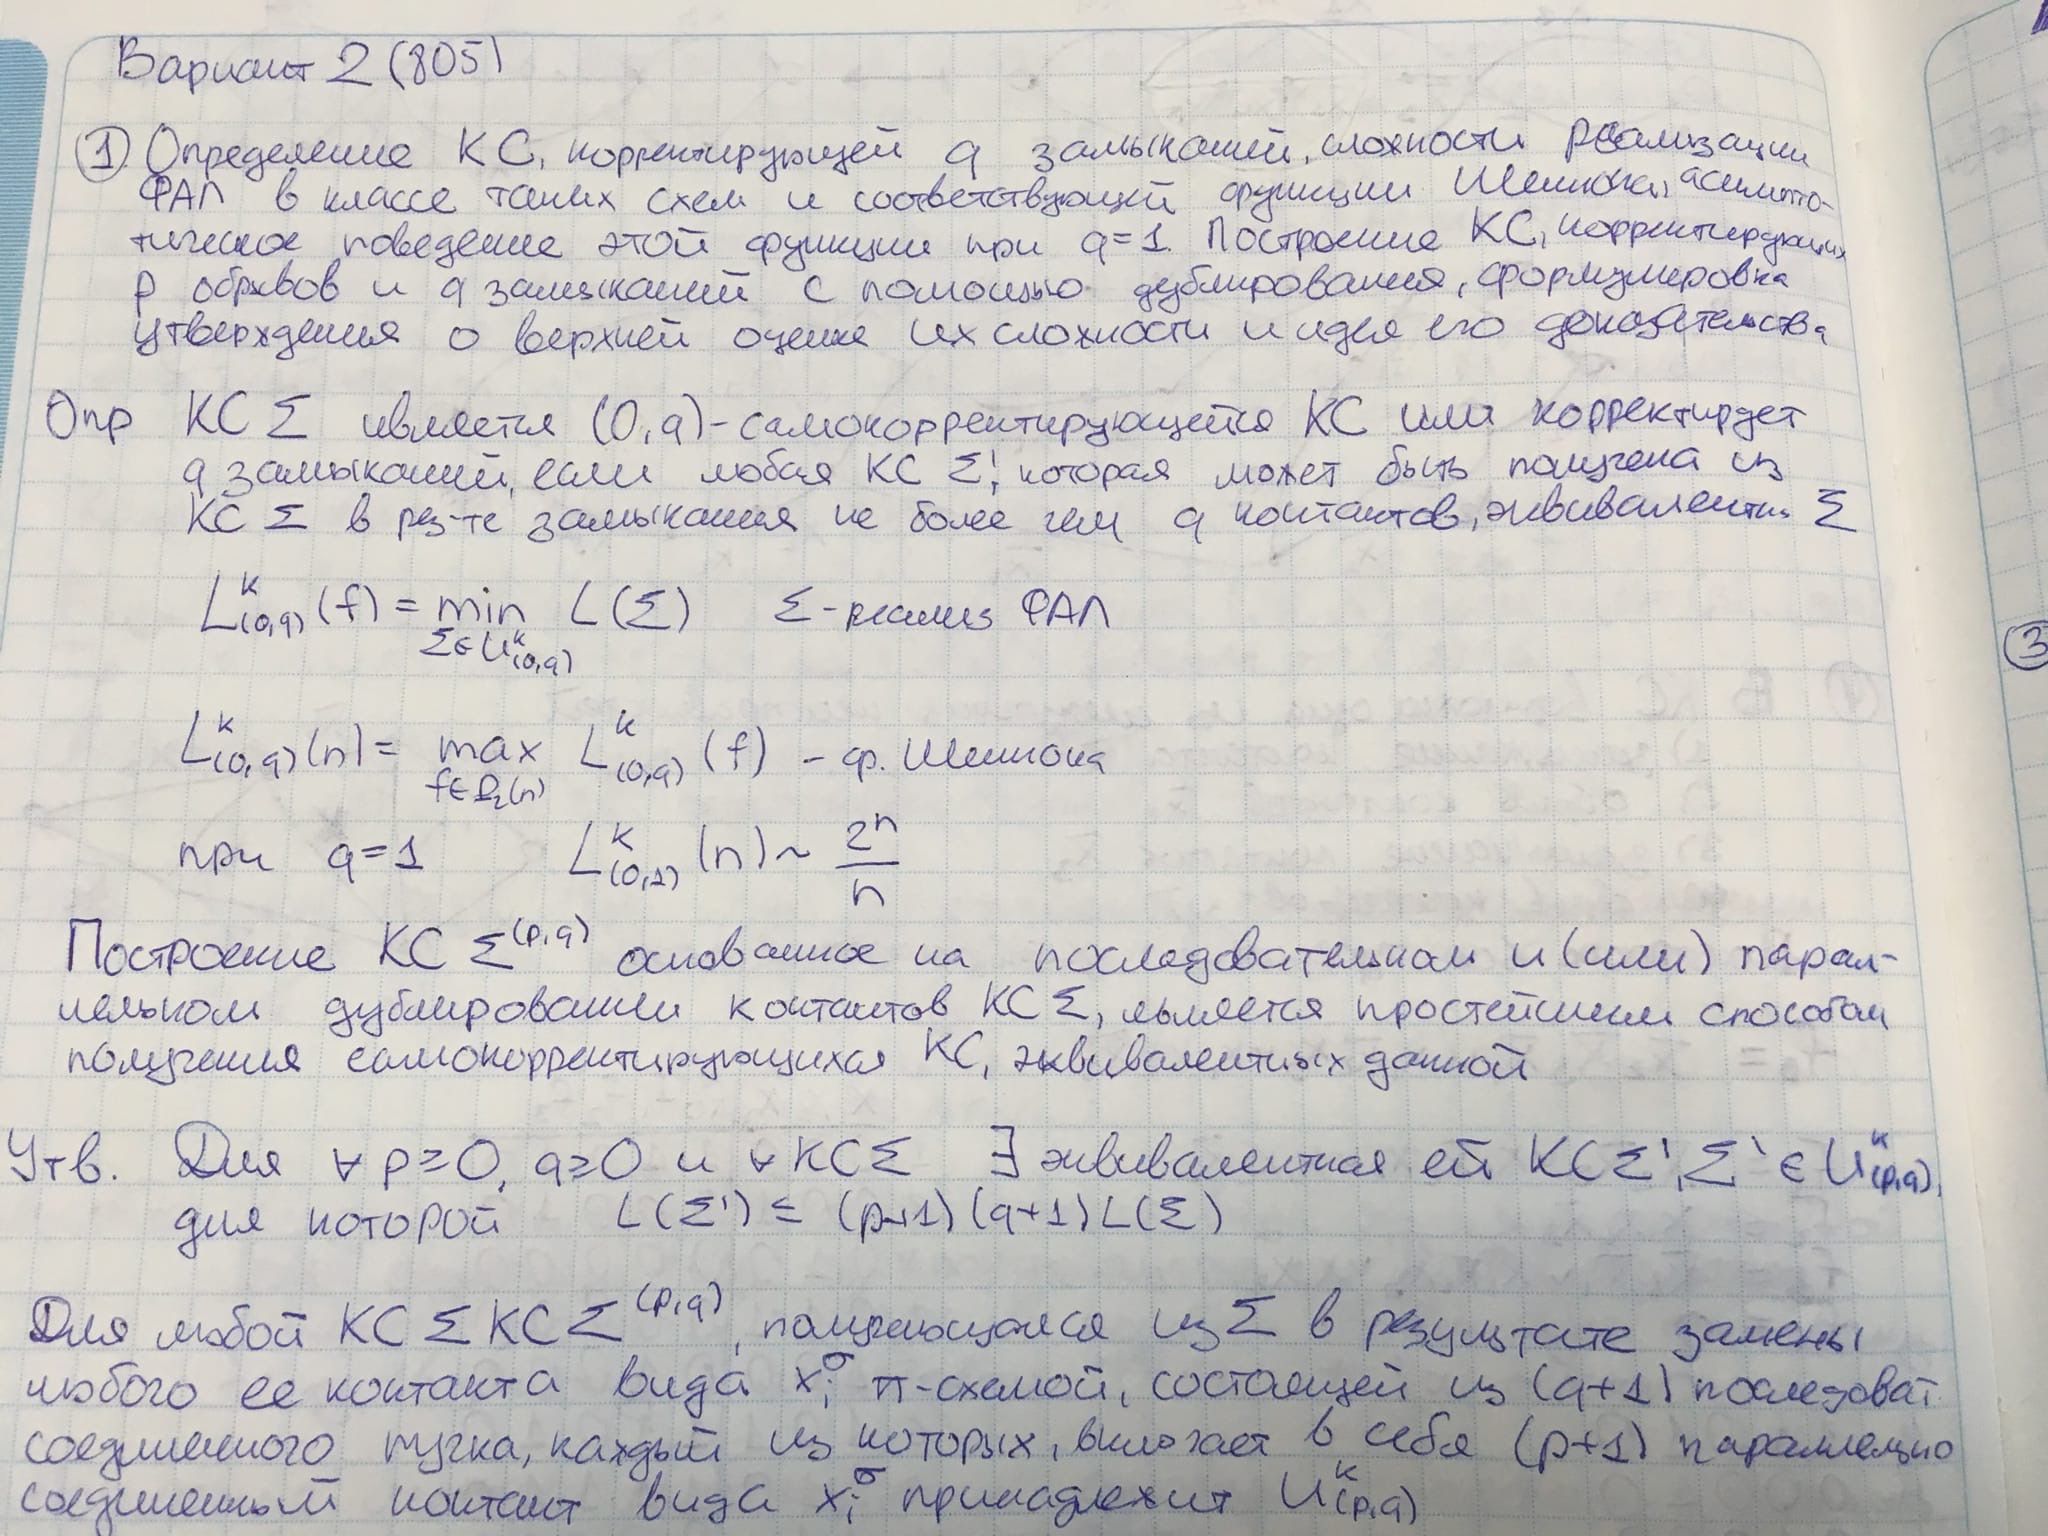 Вариант 2 (805)
① Определение КС, корректирующей q замыканий, сложности реализации
ФАЛ в классе таких схем и соответствующей функции Шеннона, асимпто-
тическое поведение этой функции при q=1. Построение КС, корректирующих
p обрывов и q замыканий с помощью дублирования, формулировка
утверждения о верхней оценке их сложности и идея его доказательства
Опр КС Σ является (0,q)-самокорректирующейся КС или корректирует
q замыканий, если любая КС Σ', которая может быть получена из
КС Σ в рез-те замыкания не более чем q контактов, эквивалентна Σ
L^K_(0,q) (f) = min_{Σ∈U^K_(0,q)} L(Σ) Σ-реализ ФАЛ
L^K_(0,q) (n) = max_{f∈P₂(n)} L^K_(0,q) (f) - ф. Шеннона
при q=1 L^K_(0,1) (n) ~ 2^n/n
Построение КС Σ^(p,q) основанное на последовательном и (или) парал-
лельном дублировании контактов КС Σ, является простейшим способом
получения самокорректирующихся КС, эквивалентных данной
Утв. Для ∀ p≥0, q≥0 и ∀ КС Σ ∃ эквивалентная ей КС Σ', Σ' ∈ U^K_(p,q),
для которой L(Σ') ≤ (p+1)(q+1)L(Σ)
Для любой КС Σ КС Σ^(p,q), получающаяся из Σ в результате замены
любого ее контакта вида x_i^σ π-схемой, состоящей из (q+1) последоват
соединенного пучка, каждый из которых, включает в себя (p+1) параллельно
соединенный контакт вида x_i^σ принадлежит U^K_(p,q)
③